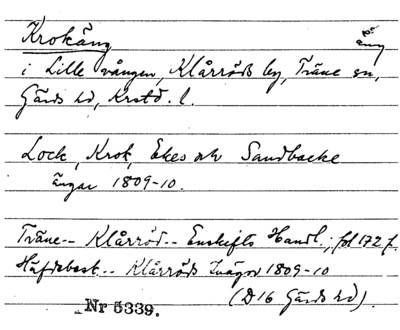 Krokäng på äng
i Lille vången, Klårröds by, Träne sn,
Gärds hd, Krstd. l.
Lock, Krok, Ekes och Sandbacke
ängar 1809-10.
Träne-- Klårröd-- Enskifts Handl.; fol 172 f.
Häfdebesk.-- Klårröds Inägor 1809-10
(D16 Gärds hd).
Nr 5339.